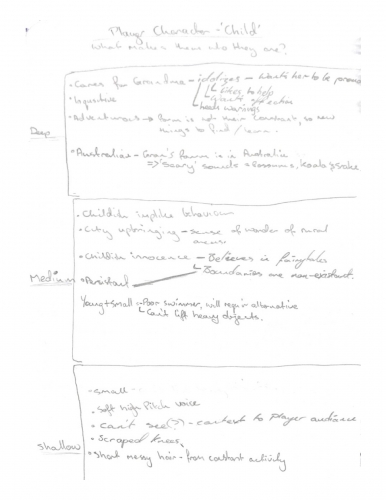 Player Character - 'Child'
What makes them who they are?
Deep
• Cares for Grandma - idolizes - Wants her to be proud
↳ likes to help
↳ heeds warnings
• Inquisitive
• Adventurous → Farm is not their homeland, so new
things to find / learn.
• Australia - Gran's Farm is in Australia
⇒ 'Scary' sounds = Possums, koala & snake
Medium
• Childish implike behaviour
• City upbringing - sense of wonder of rural
areas
• Childish innocence - Believes in fairytales
↳ Boundaries are non-existant.
• Persistant
Young + small - Poor swimmer, will require alternative
↳ Can't lift heavy objects.
Shallow
- small -
• Soft high Pitch voice
• Can't see(?) - context to player audience
• Scraped knees
• Short messy hair - from constant activity